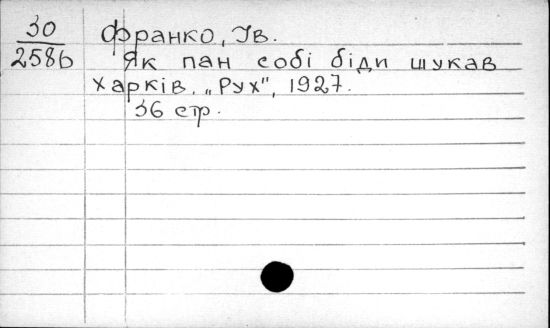 30
2586
Франко, Ів.
Як пан собі біди шукав
Харків. „Рух", 1927.
36 стр.